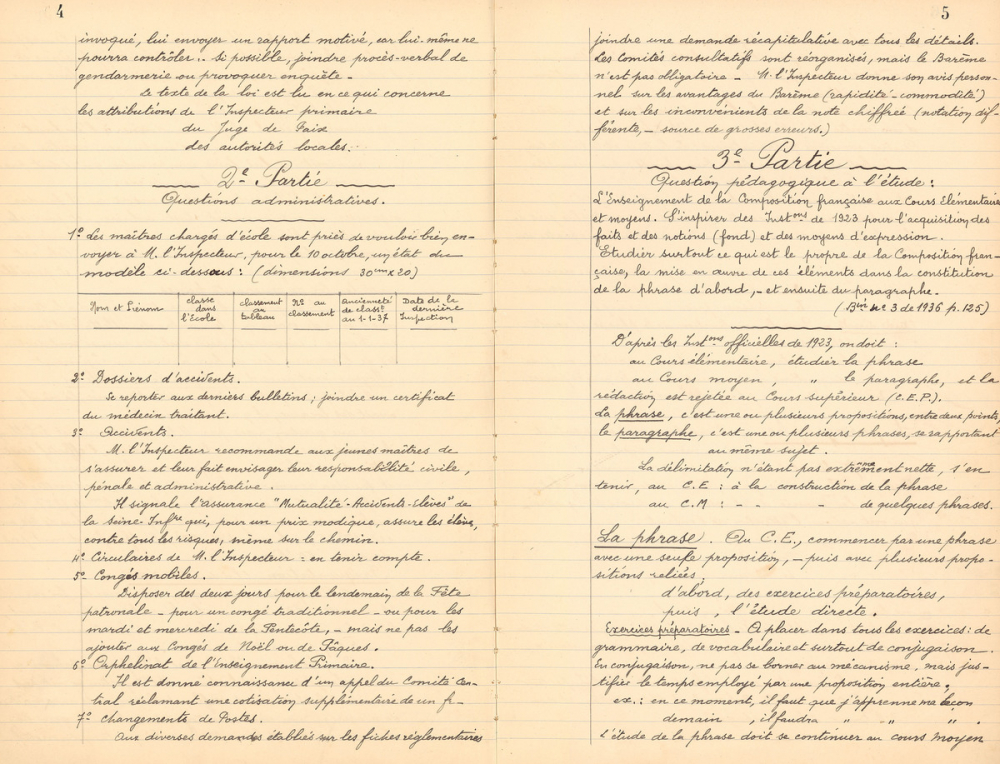 4
invoqué, lui envoyer un rapport motivé, car lui-même ne
pourra contrôler.. si possible, joindre procès-verbal de
gendarmerie ou provoquer enquête -
Le texte de la loi est lu en ce qui concerne
les attributions de l'Inspecteur primaire
du Juge de Paix
des autorités locales.
2e Partie
Questions administratives.
1° Les maîtres chargés d'école sont priés de vouloir bien en-
voyer à M. l'Inspecteur, pour le 10 octobre, un état du
modèle ci-dessous : (dimensions 30cm x 20)
Nom et Prénom
classe dans l'École
classement au tableau
N° au classement
ancienneté de classt au 1-1-37
Date de la dernière Inspection
2° Dossiers d'accidents.
Se reporter aux derniers bulletins ; joindre un certificat
du médecin traitant.
3° Accidents.
M. l'Inspecteur recommande aux jeunes maîtres de
s'assurer et leur fait envisager leur responsabilité civile,
pénale et administrative.
Il signale l'assurance "Mutualité-Accidents-Elèves" de
la Seine-Infre qui, pour un prix modique, assure les élèves,
contre tous les risques, même sur le chemin.
4° Circulaires de M. l'Inspecteur = en tenir compte.
5° Congés mobiles.
Disposer des deux jours pour le lendemain de la Fête
patronale - pour un congé traditionnel - ou pour les
mardi et mercredi de la Pentecôte, - mais ne pas les
ajouter aux Congés de Noël ou de Pâques.
6° Orphelinat de l'Enseignement Primaire.
Il est donné connaissance d'un appel du Comité Cen-
tral réclamant une cotisation supplémentaire de un fr-
7° changements de Postes.
Aux diverses demandes établies sur les fiches réglementaires
5
joindre une demande récapitulative avec tous les détails.
Les Comités consultatifs sont réorganisés, mais le Barême
n'est pas obligatoire - M. l'Inspecteur donne son avis person-
nel sur les avantages du Barême (rapidité - commodité)
et sur les inconvénients de la note chiffrée (notation dif-
férente, - source de grosses erreurs.)
3e Partie
Question pédagogique à l'étude :
L'Enseignement de la Composition française aux Cours Elémentaire
et moyens. S'inspirer des Instons de 1923 pour l'acquisition des
faits et des notions (fond) et des moyens d'expression.
Etudier surtout ce qui est le propre de la Composition fran-
çaise, la mise en œuvre de ces éléments dans la constitution
de la phrase d'abord, - et ensuite du paragraphe.
(Bin n° 3 de 1936 p. 125)
D'après les Instons officielles de 1923, on doit :
au Cours élémentaire, étudier la phrase
au Cours moyen, " le paragraphe, et la
rédaction est rejetée au Cours supérieur (C.E.P.).
La phrase, c'est une ou plusieurs propositions, entre deux points,
le paragraphe, c'est une ou plusieurs phrases, se rapportant
au même sujet.
La délimitation n'étant pas extrêmement nette, s'en
tenir, au C.E : à la construction de la phrase
au C.M : - - - de quelques phrases.
La phrase. Au C.E., commencer par une phrase
avec une seule proposition, - puis avec plusieurs propo-
sitions reliées,
d'abord, des exercices préparatoires,
puis, l'étude directe.
Exercices préparatoires - A placer dans tous les exercices : de
grammaire, de vocabulaire et surtout de conjugaison.
En conjugaison, ne pas se borner au mécanisme, mais jus-
tifier le temps employé par une proposition entière,
ex. : en ce moment, il faut que j'apprenne ma leçon
demain, il faudra " -" ".
L'étude de la phrase doit se continuer au cours moyen